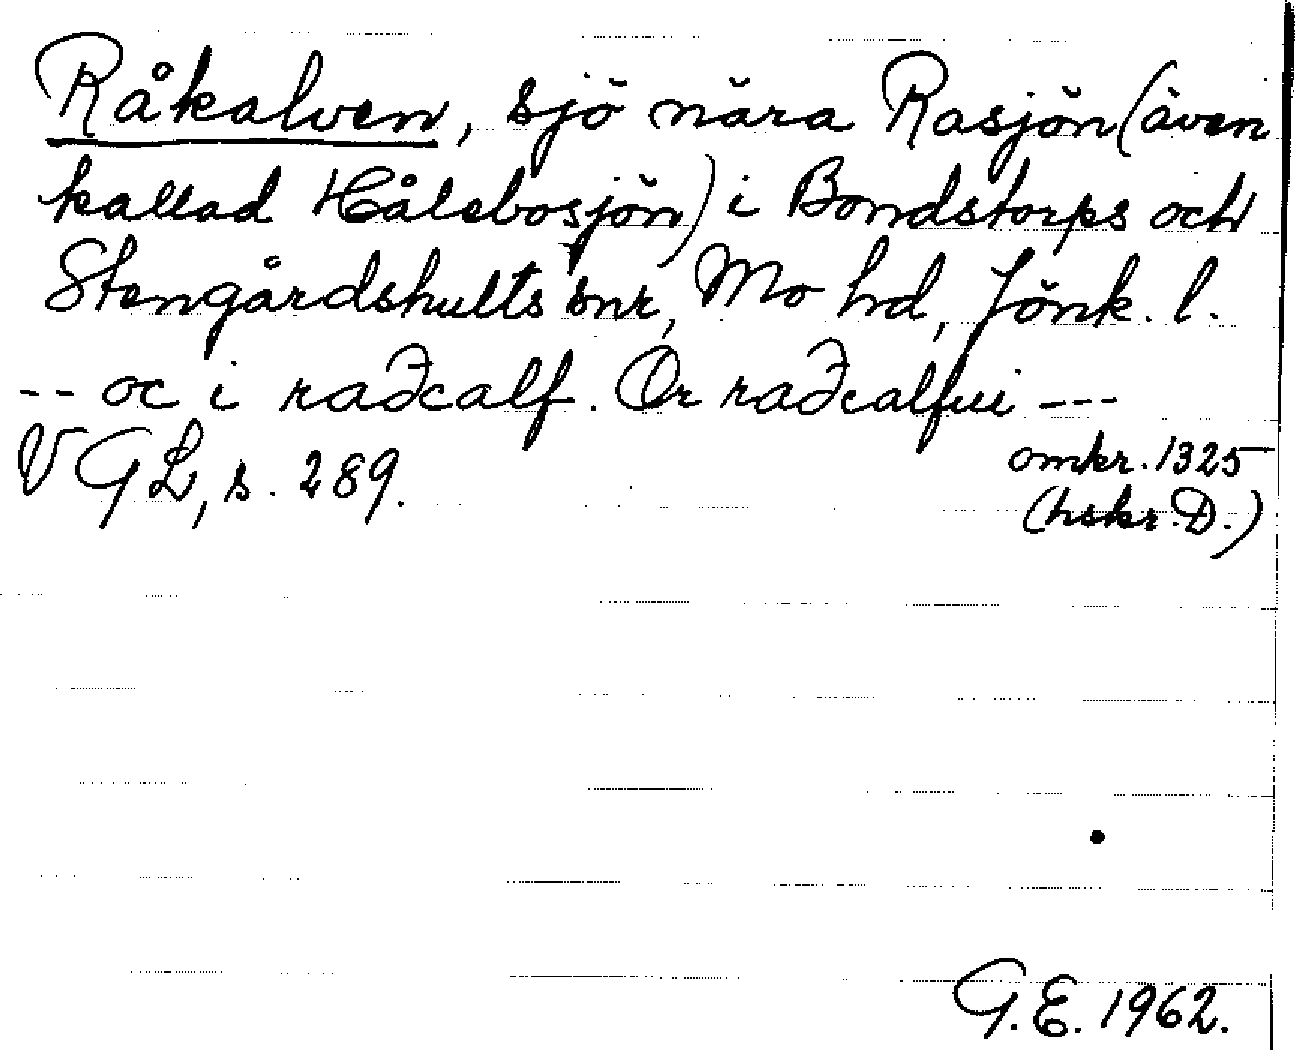 Råkalven, sjö nära Rasjön (även
kallad Hålebosjön) i Bondstorps och
Stengårdshults snr, Mo hd, Jönk. l.
-- oc i raðcalf. Or raðcalfui ---
VGL, s. 289.
omkr. 1325
(hskr. D.)
G.E. 1962.